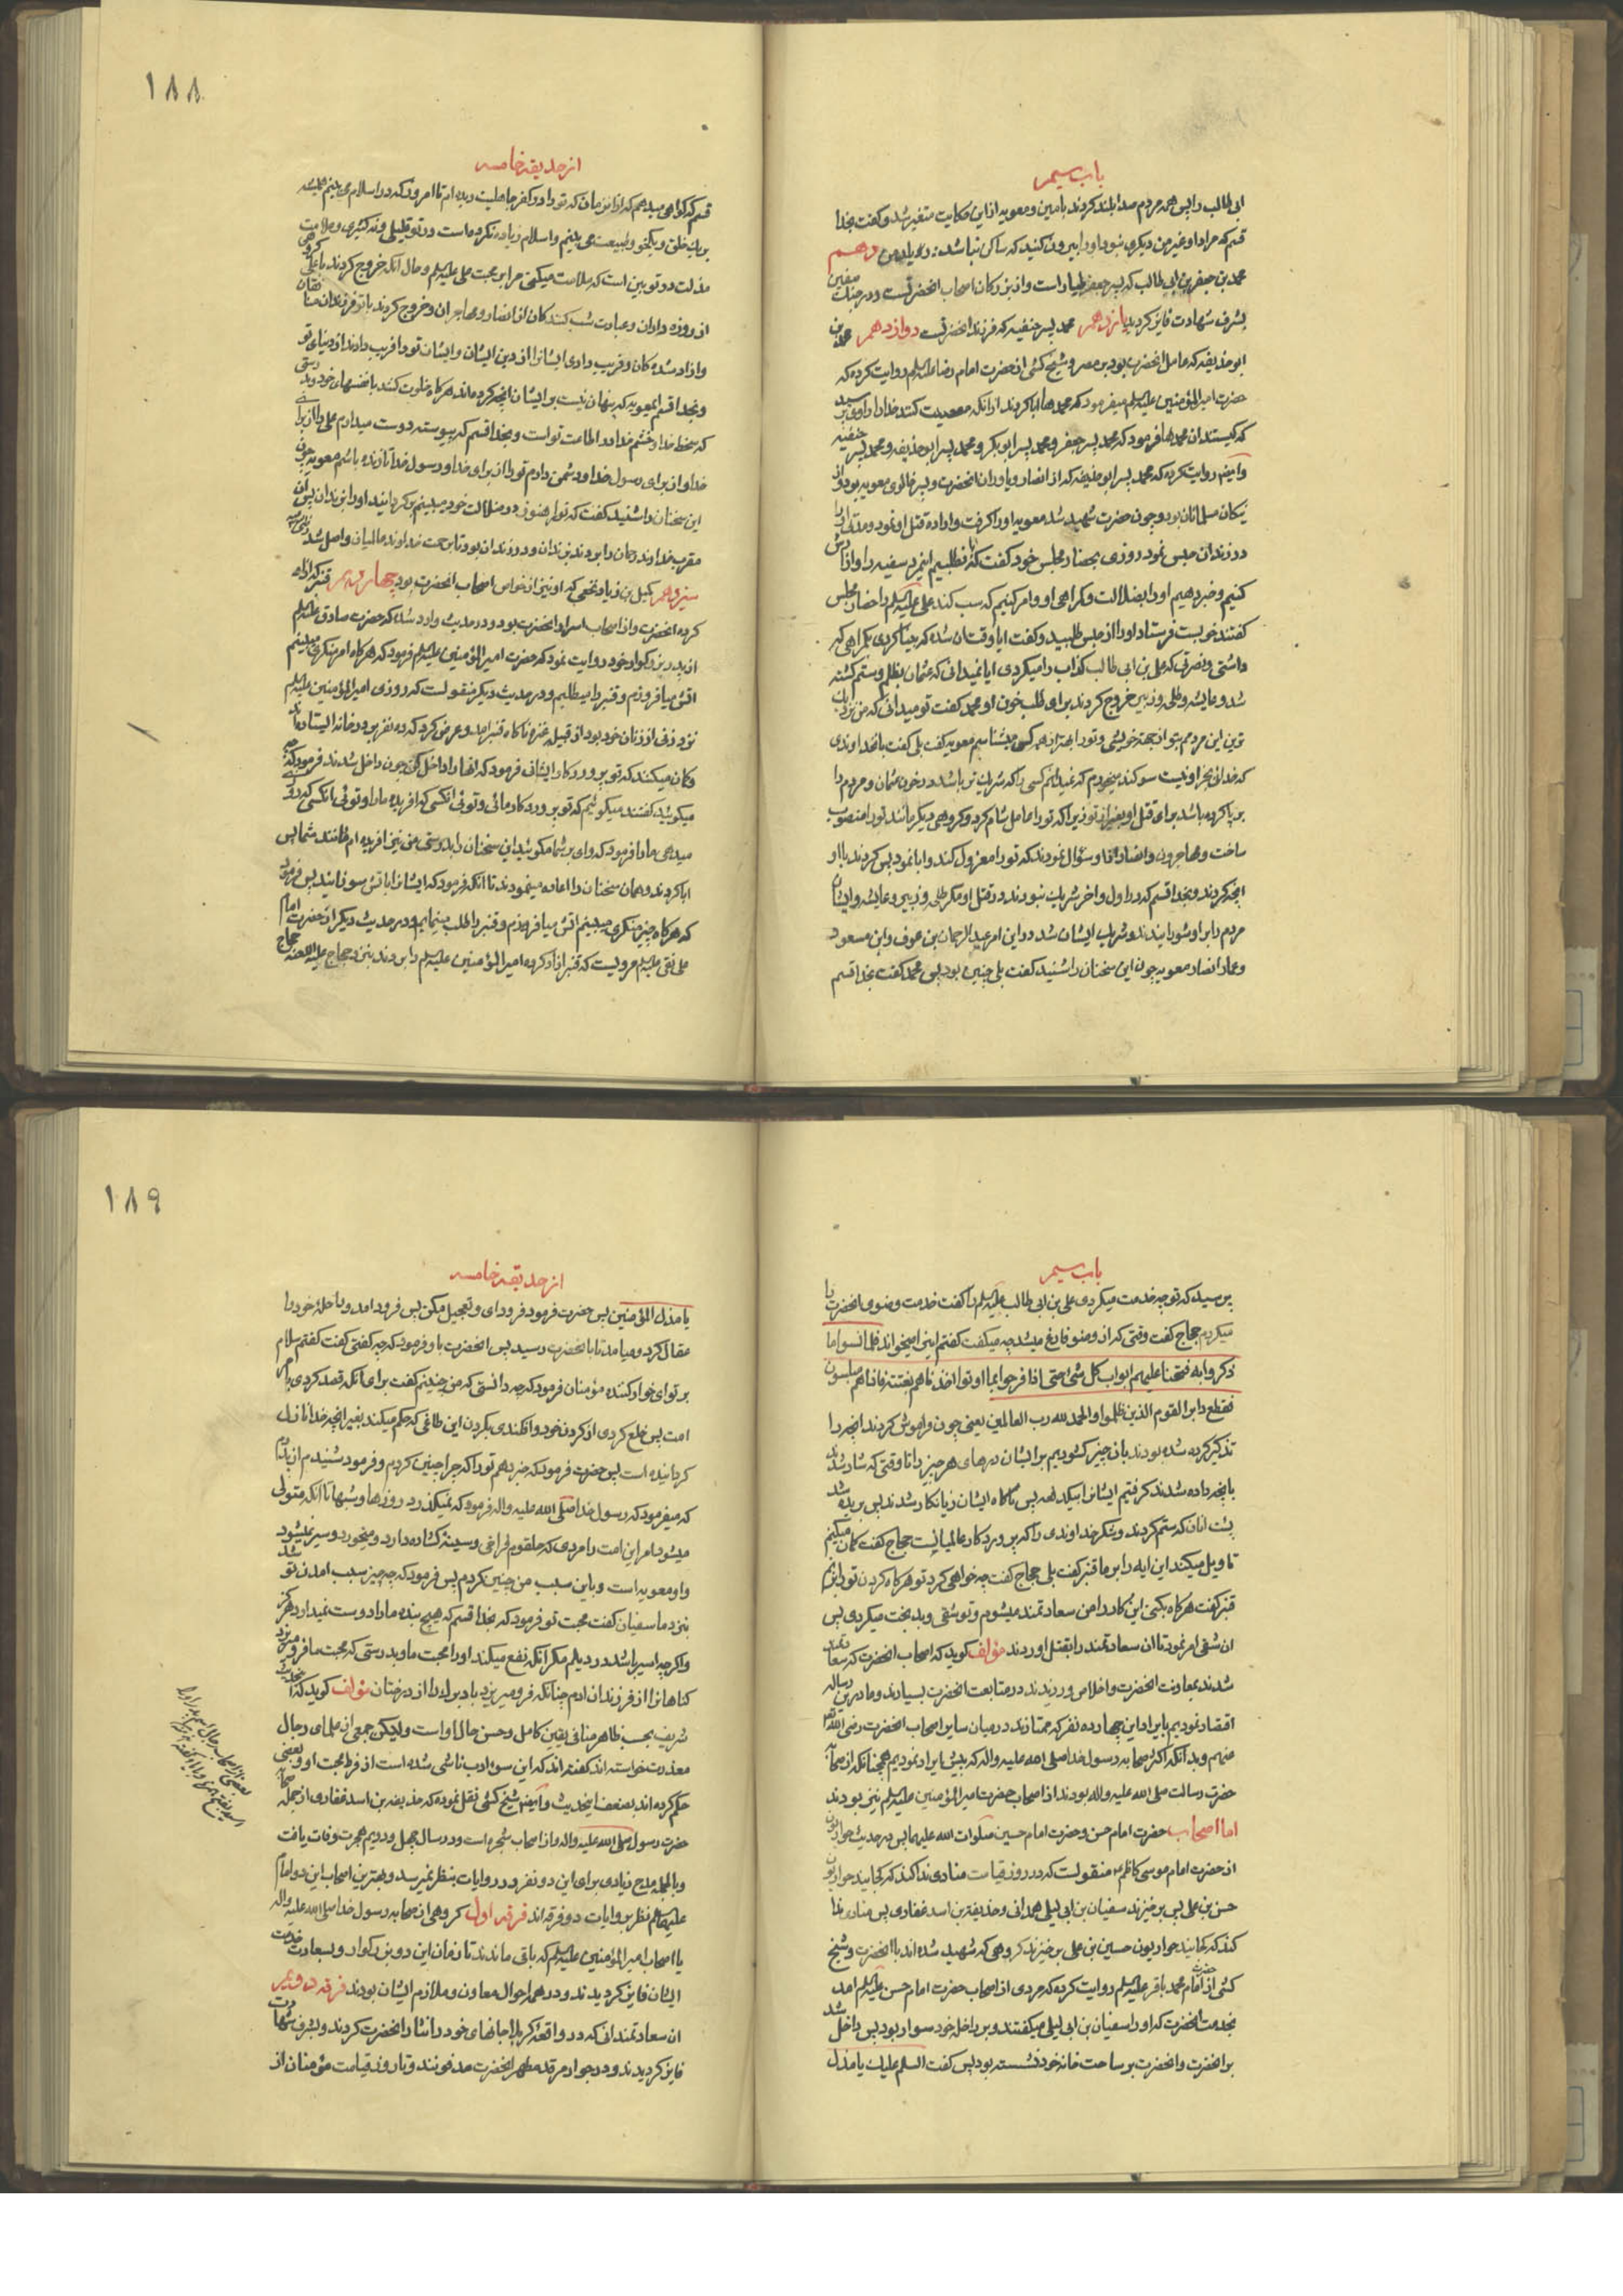 باب سیم
ابی طالب را پس همه مردم صدا بلند کردند بامین و معویه ازین حکایت متغیر شد و گفت بخدا
قسم که مراد او غیر من دیگری نبود او را بیرون کنید که ساکن نباشد در بلاد من دهم
محمد بن جعفر بن ابی طالب که پسر جعفر طیار است و از بزرکان اصحاب انحضرتست و در جنک صفین
بشرف شهادت فایز کردید یازدهم محمد پسر حنفیه که فرزند انحضرتست دوازدهم محمد بن
ابو حذیفه که عامل انحضرت بود بر مصر و شیخ کشی از حضرت امام رضا علیه السلم روایت کرده که
حضرت امیر المؤمنین علیه السلم میفرمود که محمدها ابا کردند از انکه معصیت کنند خدا را راوی پرسید
که کیستند ان محمدها فرمود که محمد پسر جعفر و محمد پسر ابوبکر و محمد پسر ابو حذیفه و محمد پسر حنفیه
و ایضا روایت کرده که محمد پسر ابو حذیفه که از انصار و یاوران انحضرت و پسر خالوی معویه بود و از
نیکان مسلمانان بود و چون حضرت شهید شد معویه او را کرفت و اراده قتل او نمود و مدتی او را
در زندان حبس نمود روزی بحضار مجلس خود گفت که ایا نطلبیم این مرد سفیه را و از انش
کنیم و خبر دهیم او را بضلالت و کمراهی او و امر کنیم که سب کند علی علیه السلم را حضار مجلس
گفتند خوبست فرستاد او را از حبس طلبید و گفت ایا وقت ان نشده که بینا کردی بکمراهی که
داشتی و نصرتی که علی بن ابی طالب کذاب را میکردی ایا نمیدانی که عثمان بظلم و ستم کشته
شد و عایشه و طلحه و زبیر خروج کردند برای طلب خون او محمد گفت تو میدانی که من نزدیک
ترین این مردمم بتو از جهة خویشی و تو را بهتر از همه کسی میشناسم معویه گفت بلی گفت بانخداوندی
که خدائی بجز او نیست سوکند میخورم که نمیدانم کسی را که شریک تر باشد در خون عثمان و مردم را
بر پا کرده باشد برای قتل او بغیر از تو زیرا که تو را عامل شام کرد و کروهی دیکر مانند تو را منصوب
ساخت و مهاجرون و انصار از او سؤال نمودند که تو را معزول کند و ابا نمود پس کردند با او
انچه کردند و بخدا قسم که در اول و اخر شریک نبودند در قتل او مکر طلحه و زبیر و عایشه و ایشان
مردم را بر او شورانیدند و شریک ایشان شد در این امر عبد الرحمان بن عوف و ابن مسعود
و عمار و انصار معویه چون این سخنان را شنید گفت بلی چنین بود پس محمد گفت بخدا قسم
۱۸۸
از حدیقه خامسه
قسم که کواهی میدهم که از انزمان که تو را در کفر جاهلیت دیده ام تا امروز که در اسلام می بینم همیشه
بر یک خلق و یکخو و طبیعت می بینم و اسلام زیاده نکرده است در تو قلیلی و نه کثیری و علامت
مذلت در تو بین است که ملامت میکنی مرا بر محبت علی علیه السلم و حال انکه خروج کردند با علی کروهی
از روزه داران و عبادت شب کنندکان از انصار و مهاجران و خروج کردند با تو فرزندان منافقان
و ازاد شده کان و فریب دادی ایشانرا از دین ایشان و ایشان تو را فریب دادند از دنیای تو
و بخدا قسم ایمعویه که پنهان نیست بر ایشان انچه کرده اند هرکاه خلوت کنند با نفسهای خود بدرستی
که سخط خدا و خشم خدا در اطاعت تو است و بخدا قسم که پیوسته دوست میدارم علی را از برای
خدا و از برای رسول خدا و دشمن دارم تو را از برای خدا و رسول خدا تا زنده باشم معویه چون
این سخنان را شنید گفت که تو را هنوز در ضلالت خود میبینم برکردانید او را بزندان پس ان
مقرب خداوند رحمان را بردند بزندان و در زندان بود تا برحمت خداوند عالمیان واصل شد
سیزدهم کمیل بن زیاد نخعی که او نیز از خواص اصحاب انحضرت بود چهاردهم قنبر که ازاد
کرده انحضرت و از اصحاب اسرار انحضرت بود و در حدیث وارد شده که حضرت صادق علیه السلم
از پدر بزرکوار خود روایت نمود که حضرت امیر المؤمنین علیه السلم فرمود که هرکاه امر منکری میبینم
اتش میافروزم و قنبر را میطلبم و در حدیث دیکر منقولست که روزی امیر المؤمنین علیه السلم
نزد زنی از زنان خود بود از قبیله عنزه ناکاه قنبر امد و عرض کرد که ده نفر بر در خانه ایستاده اند
و کمان میکنند که تو پروردکار ایشانی فرمود که انها را داخل کن چون داخل شدند فرمود که چه
میکوئید گفتند میکوئیم که تو پروردکار مائی و توئی انکسی که افریده ما را و توئی انکسی که روزی
میدهی ما را فرمود که وای بر شما مکوئید این سخنان را بدرستی من نیز افریده ام مانند شما پس
ابا کردند و همان سخنان را اعاده مینمودند تا انکه فرمود که ایشانرا باتش سوزانیدند پس فرمود
که هرکاه چیز منکری میبینم اتش میافروزم و قنبر را طلب مینمایم و در حدیث دیکر از حضرت امام
علی نقی علیه السلم مرویست که قنبر ازاد کرده امیر المؤمنین علیه السلم را بردند بنزد حجاج علیه اللعنه حجاج
باب سیم
پرسید که تو چه خدمت میکردی علی بن ابی طالب علیه السلم را گفت خدمت وضوی انحضرت را
میکردم حجاج گفت وقتی که از وضو فارغ میشد چه میکفت گفتم این ایه میخواند فلما نسوا ما
ذکروا به فتحنا علیهم ابواب کل شئ حتی اذا فرحوا بما اوتوا اخذناهم بغتة فاذا هم مبلسون
فقطع دابر القوم الذین ظلموا و الحمد لله رب العالمین یعنی چون فراموش کردند انچه را
تذکیر کرده شده بودند بان چیز کشودیم بر ایشان درهای هر چیز را تا وقتی که شاد شدند
بانچه داده شدند کرفتیم ایشانرا بیکدفعه پس ناکاه ایشان زیانکار شدند پس بریده شد
پشت انان که ستم کردند و شکر خداوندی را که پروردکار عالمیانست حجاج گفت کمان میکنم
تاویل میکند این ایه را بر ما قنبر گفت بلی حجاج گفت چه خواهی کرد تو هرکاه کردن تو را بزنم
قنبر گفت هرکاه بکنی این کار را من سعادتمند میشوم و تو شقی و بدبخت میکردی پس
ان شقی امر نمود تا ان سعادتمند را بقتل اوردند مؤلف کوید که اصحاب انحضرت که سعادتمند
شدند بمعاونت انحضرت و اخلاص ورزیدند در متابعت انحضرت بسیارند و ما در این رساله
اقتصار نمودیم بایراد این چهارده نفر که ممتازند در میان سایر اصحاب انحضرت رضی الله
عنهم و بدانکه اکثر صحابه رسول خدا صلی الله علیه و اله که پیش ایراد نمودیم همچنانکه از صحابه
حضرت رسالت صلی الله علیه و اله بودند از اصحاب حضرت امیر المؤمنین علیه السلم نیز بودند
اما اصحاب حضرت امام حسن و حضرت امام حسین صلوات الله علیهما پس در حدیث حواریون
از حضرت امام موسی کاظم منقولست که در روز قیامت منادی ندا کند که کجایند حواریون
حسن بن علی پس برخیزند سفیان بن ابی لیلی همدانی و حذیفة بن اسد غفاری پس منادی ندا
کند که کجایند حواریون حسین بن علی برخیزند کروهی که شهید شده اند با انحضرت و شیخ
کشی از حضرت امام محمد باقر علیه السلم روایت کرده که مردی از اصحاب حضرت امام حسن علیه السلم امد
بخدمت انحضرت که او را سفیان بن ابی لیلی میکفتند و بر راحله خود سوار بود پس داخل شد
بر انحضرت و انحضرت بر ساحت خانه خود نشسته بود پس گفت السلم علیک یا مذل
۱۸۹
از حدیقه خامسه
یا مذل المؤمنین پس حضرت فرمود فرود ای و تعجیل مکن پس فرود امد و راحله خود را
عقال کرد و میامد تا بانحضرت رسید پس انحضرت باو فرمود که چه گفتی گفت گفتم سلام
بر تو ای خوار کننده مؤمنان فرمود که چه دانستی که من چنینم گفت برای انکه قصد کردی بامر
امت پس خلع کردی از کردن خود و افکندی بکردن این طاغی که حکم میکند بغیر انچه خدا نازل
کردانیده است پس حضرت فرمود که خبر دهم تو را که چرا چنین کردم و فرمود شنیدم از پدرم
که میفرمود که رسول خدا صلی الله علیه و اله فرمود که نمیکذرد روزها و شبها تا انکه متولی
میشود امر این امت را مردی که حلقوم فراخی و سینه کشاده دارد و میخورد و سیر نمیشود
و او معویه است و باین سبب من چنین کردم پس فرمود که چه چیز سبب امدن تو شد
بنزد ما سفیان گفت محبت تو فرمود که بخدا قسم که هیچ بنده ما را دوست نمیدارد هرکز
و اکر چه اسیر باشد در دیلم مکر انکه نفع میکند او را محبت ما و بدرستی که محبت ما فرو میریزد
کناهانرا از فرزندان ادم چنانکه فرو میریزد باد برک را از درختان مؤلف کوید که اینحدیث
شریف بحسب ظاهر منافی یقین کامل و حسن حال او است ولیکن جمعی از علمای رجال
معذرت خواسته اند گفته اند که این سوء ادب ناشی شده است از فرط محبت او و بعضی
حکم کرده اند بضعف اینحدیث و ایضا شیخ کشی نقل نموده که حذیفه بن اسد غفاری از جمله صحابه
حضرت رسول صلی الله علیه و اله و از اصحاب شجره است و در سال چهل و دویم هجرت وفات یافت
و بالجمله مدح زیادی برای این دو نفر در روایات بنظر نمیرسد و بهترین اصحاب این دو امام
علیهما السلم نظر بروایات دو فرقه اند فرقه اول کروهی از صحابه رسول خدا صلی الله علیه و اله
یا اصحاب امیر المؤمنین علیه السلم که باقی ماندند تا زمان این دو بزرکوار و بسعادت خدمت
ایشان فایز کردیدند و در همه احوال معاون و ملازم ایشان بودند فرقه دویم
ان سعادتمندانی که در واقعه کربلا جانهای خود را نثار انحضرت کردند و بشرف شهادت
فایز کردیدند و در جوار مرقد مطهر انحضرت مدفونند و تا روز قیامت مؤمنان از